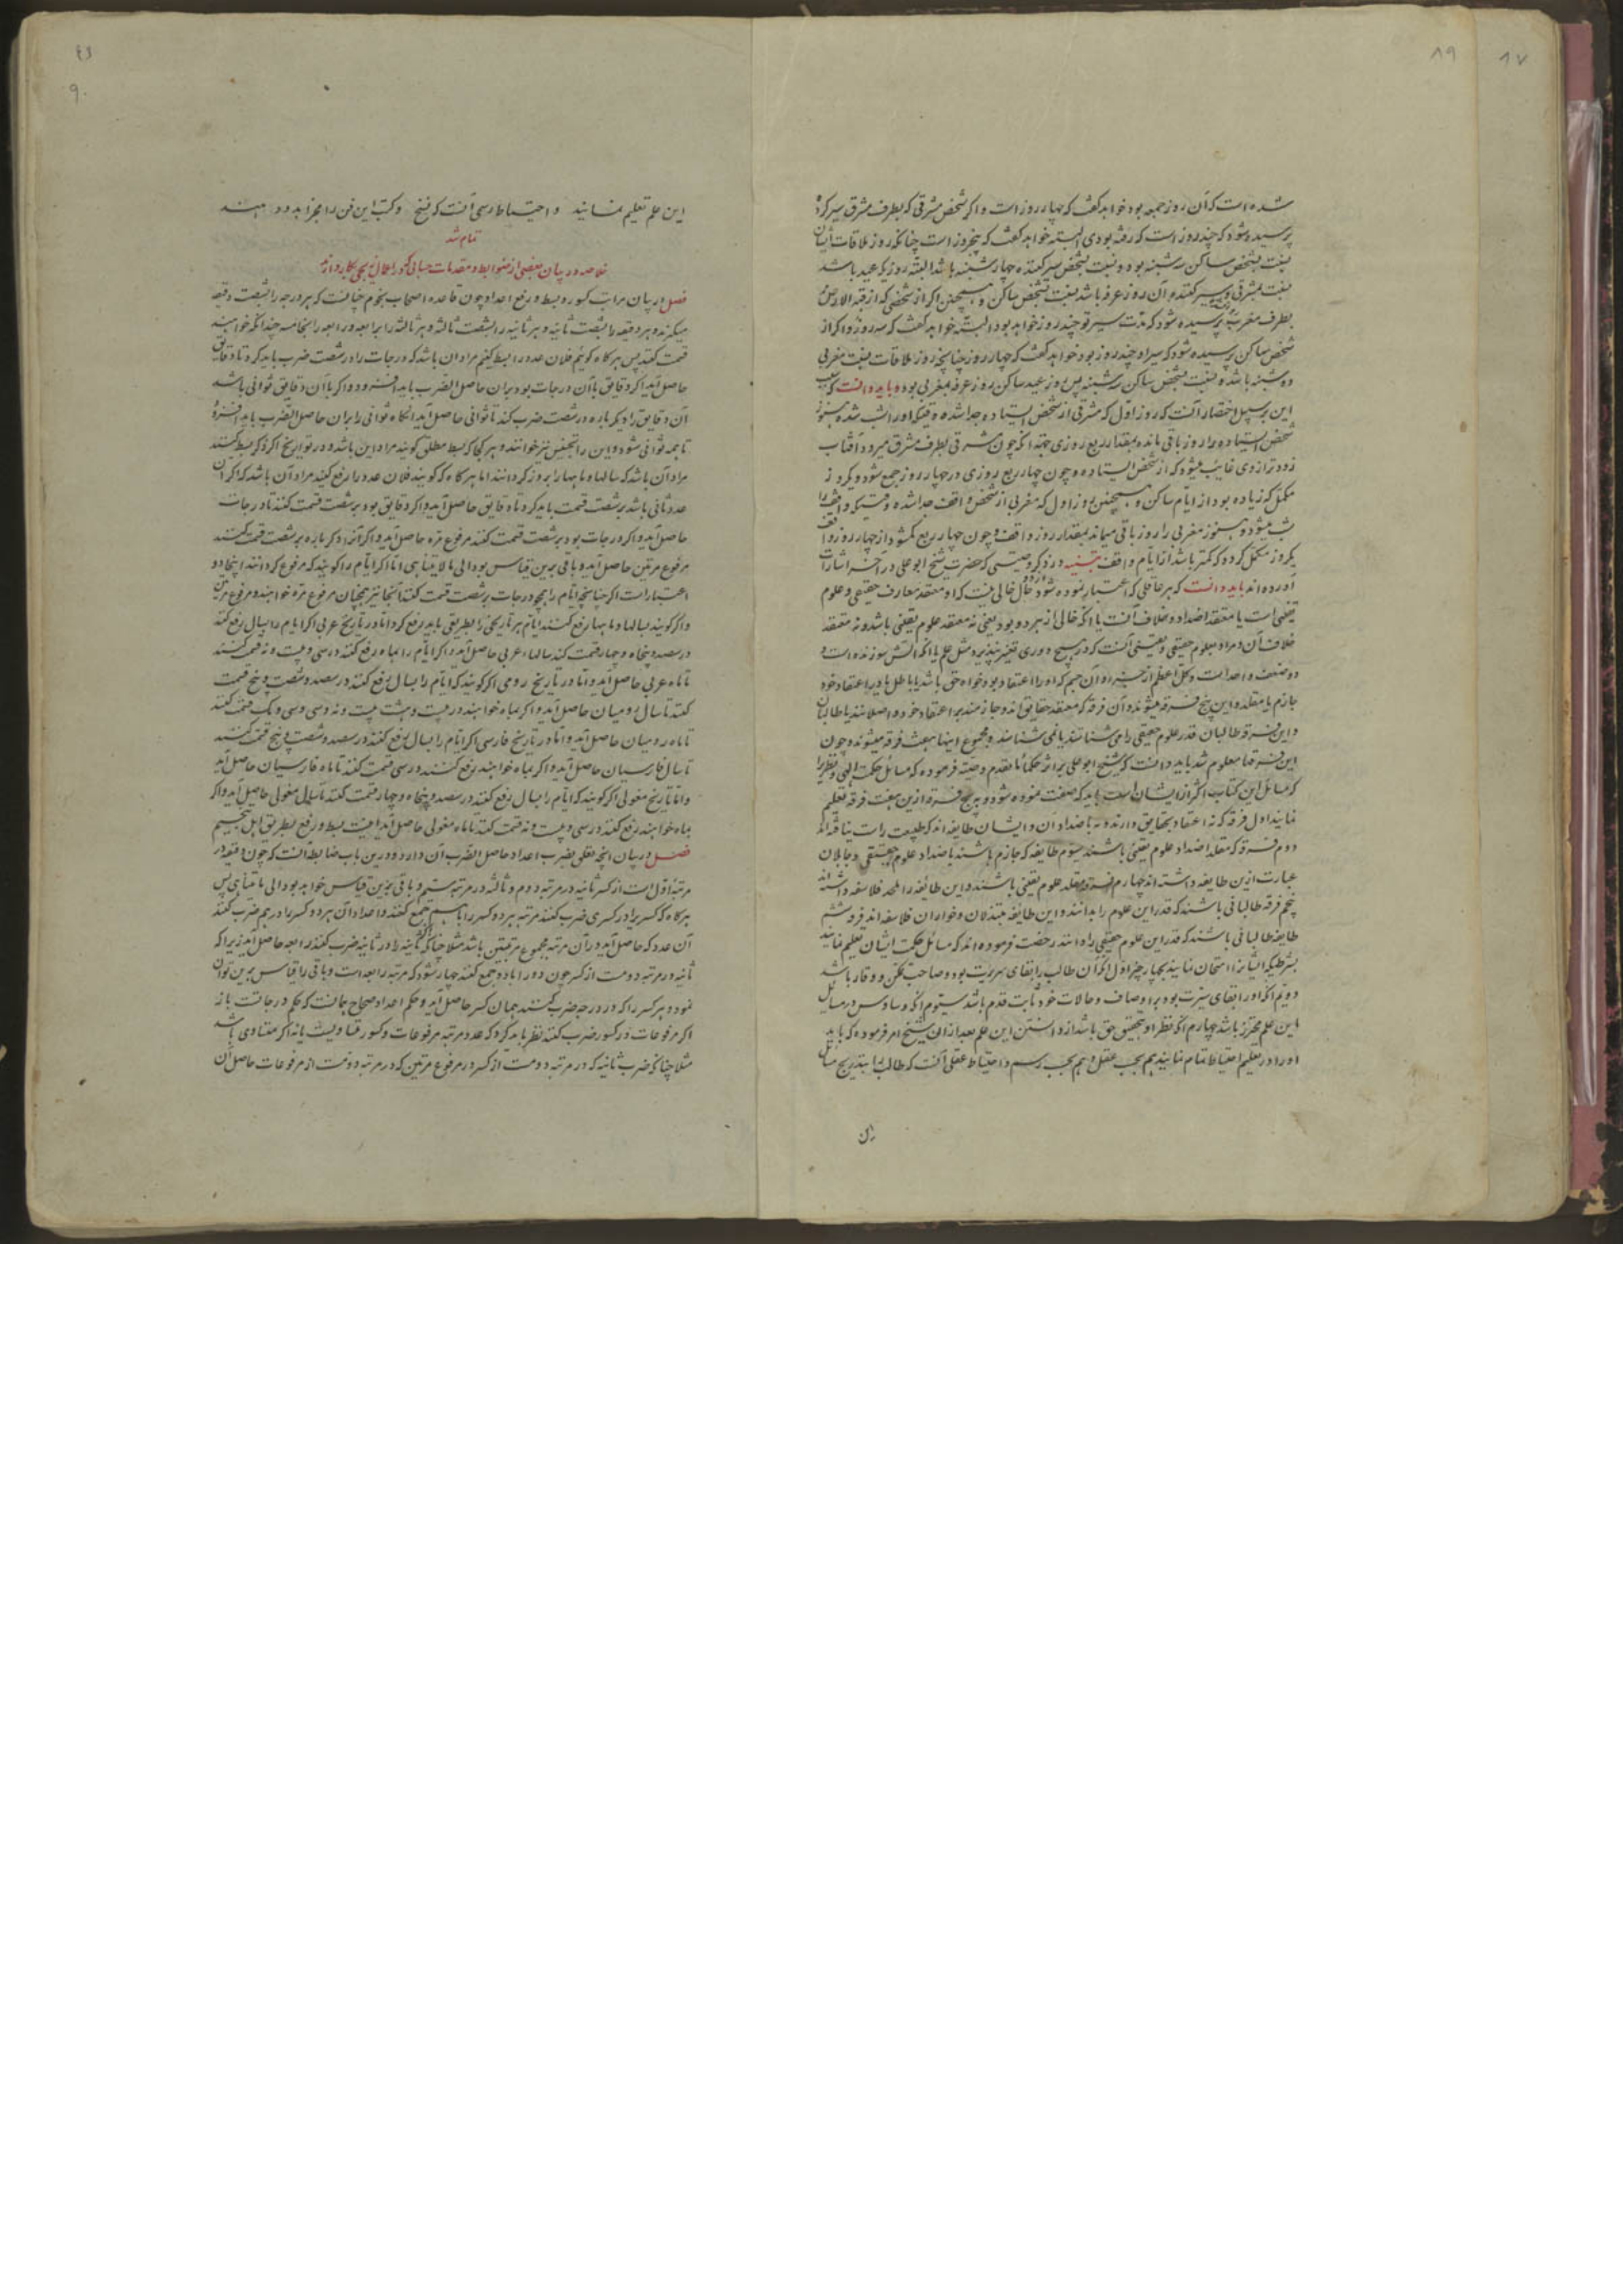 ۸۹
۸۷
شده است که آن روز جمعه بود خواهد گفت که چهار روز است و اگر شخص مشرقی که بطرف مشرق سیر کرده
پرسیده شود که چند روز است که رفته بودی البته خواهد گفت که پنجروز است چنانکه روز ملاقات ایشان
نسبت بشخص ساکن سه شنبه بود و نسبت بشخص سیر کننده چهارشنبه باشد البته روزیکه عید باشد
نسبت بمشرقی آن روز عرفه باشد نسبت بشخص ساکن و همچنین اگر از شخصی که از قبة الارض
بطرف مغرب پرسیده شود که مدت سیر تو چند روز خواهد بود البته خواهد گفت که سه روز و اگر از
شخص ساکن پرسیده شود که سیر او چند روز بود خواهد گفت که چهار روز چنانچه روز ملاقات نسبت بمغربی
دوشنبه باشد و نسبت بشخص ساکن سه شنبه پس روز عید ساکن روز عرفه مغربی بود و باید دانست که سبب
این بر سبیل اختصار آنست که روز اول که مشرقی از شخص ایستاده جدا شده وقتیکه او را شب شده هنوز
شخص ایستاده را روز باقی مانده بمقدار ربع روزی جهة آنکه چون مشرقی بطرف مشرق میرود آفتاب
زودتر از وی غایب میشود که از شخص ایستاده و چون چهار ربع روزی در چهار روز جمع شود و یکروز
مکمل که زیاده بود از ایام ساکن و همچنین روز اول که مغربی از شخص واقف جدا شده وقتیکه واقف را
شب میشود هنوز مغربی را روز باقی میماند بمقدار روز واقف و چون چهار ربع کم شود از چهار روز واقف
یکروز مکمل گردد که کمتر باشد از ایام واقف تنبیه در ذکر وصیتی که حضرت شیخ ابو علی در آخر اشارات
آورده اند باید دانست که هر عاقلی که اعتبار نموده شود از دو حال خالی نیست که او معتقد معارف حقیقی و علوم
یقینی است یا معتقد اضداد و خلاف آنست یا آنکه خالی از هر دو بود یعنی نه معتقد علوم یقینی باشد و نه معتقد
خلاف آن و مراد بعلوم حقیقی و یقینی آنست که در هیچ دوری تغیر نپذیرد مثل علم یا آنکه آتش سوزنده است و
دو ضعف واحد است و کل اعظم از جزء او آن جهم که او را اعتقاد بود خواه حق باشد یا باطل یا در اعتقاد خود
جازم یا مقلد و این پنج فرقه میشوند و آن فرقه که معتقد حقایق اند و جازمند بر اعتقاد خود واصلانند یا طالبان
و این فرقه طالبان قدر علوم حقیقی را می شناسند یا نمی شناسند و مجموع اینها هفت فرقه میشوند و چون
این فرقه ها معلوم شد باید دانست که شیخ ابو علی بر اثر حکماء ما تقدم وصیت فرموده که مسائل حکمت الهی و نظریرا
که مسائل این کتاب اکثر از ایشان است باید که صفت نموده شود و به پنج فرقه از این هفت فرقه تعلیم
ننمایند اول فرقه که نه اعتقاد بحقایق دارند و نه باضداد آن و ایشان طایفه اند که طبیعت راست نیافته اند
دوم فرقه که مقلد اضداد علوم یقینی باشند سیوم طایفه که جازم باشند باضداد علوم حقیقی و جاهلان
عبارت ازین طایفه داشته اند چهارم فرقه مقلد علوم یقینی باشند و این طائفه را ملحد فلاسفه داشته اند
پنجم فرقه طالبانی باشند که قدر این علوم را بدانند و این طایفه مبتذلان و خواران فلاسفه اند فرقه ششم
طایفه طالبانی باشند که قدر این علوم حقیقی را دانند رخصت فرموده اند که مسائل حکمت ایشان تعلیم نمایند
بشرطیکه ایشانرا امتحان نمایند بچهار چیز اول آنکه آن طالب را بقای سریرت بود و صاحب تمکن و وقار باشد
دویم آنکه او را بقای سیرت بود بر اوصاف و حالات خود ثابت قدم باشد سیوم آنکه وساوس در مسائل
این علم محترز باشد چهارم آنکه نظر او بتحقیق حق باشد از دانستن این علم بعد از آن شیخ امر فرموده که باید
او را در تعلیم احتیاط تمام نمایند هم بحسب عقل و هم بحسب رسم و احتیاط عقلی آنست که طالب را بتدریج مسائل
این
۹۰
این علم تعلیم نمایند و احتیاط رسمی آنست که نسخ و کتب این فن را مجزا بدو دهند
تمام شد
خلاصه در بیان بعضی از ضوابط و مقدمات حسابی که در اعمال زیجی بکار در آید
فصل در بیان مراتب کسور و بسط و رفع اعداد چون قاعده اصحاب نجوم چنانست که هر درجه را شصت دقیقه
میگیرند و هر دقیقه را شصت ثانیه و هر ثانیه را شصت ثالثه و هر ثالثه را برابعه و رابعه را بخامسه چندانکه خواهند
قسمت کنند پس هرگاه گوئیم فلان عدد را بسط کنیم مراد آن باشد که درجات را در شصت ضرب باید کرد تا دقایق
حاصل آید اگر دقایق با آن درجات بود بر آن حاصل الضرب باید افزود و اگر با آن دقایق ثوانی باشد
آن دقایق را دیگر باره در شصت ضرب کنند تا ثوانی حاصل آید آنگاه ثوانی را بر آن حاصل الضرب باید افزود
تا همه ثوانی شود و این را تجنیس نیز خوانند و هر کجا که بسط مطلق گویند مراد این باشد و در تواریخ اگر ذکر بسط کنند
مراد آن باشد که سالها و ماهها را بروز گردانند اما هرگاه که گویند فلان عدد را رفع کنید مراد آن باشد که اگر آن
عدد ثوانی باشد بر شصت قسمت باید کرد تا دقایق حاصل آید و اگر دقایق بود بر شصت قسمت کنند تا درجات
حاصل آید و اگر درجات بود بر شصت قسمت کنند مرفوع مره حاصل آید و اگر آنرا دیگر باره بر شصت قسمت کنند
مرفوع مرتین حاصل آید و باقی برین قیاس بود الی ما لا یتناهی اما اگر ایام را گویند که مرفوع گردانند اینجا دو
اعتبار است اگر چنانچه ایام را همچو درجات بر شصت قسمت کنند آنجا نیز همچنان مرفوع مره خوانند و مرفوع مرتین
و اگر گویند بسالها و ماهها رفع کنند ایام هر تاریخی را بطریقی باید رفع کرد اما در تاریخ عربی اگر ایام را بسال رفع کنند
در سیصد و پنجاه و چهار قسمت کنند سالهاء عربی حاصل آید و اگر ایام را بماه رفع کنند در سی و بیست و نه قسمت کنند
تا ماه عربی حاصل آید و اما در تاریخ رومی اگر گویند که ایام را بسال رفع کنند در سیصد و شصت و پنج قسمت
کنند تا سال رومیان حاصل آید و اگر بماه خواهند در بیست و هشت بیست و نه و سی و سی و یک قسمت کنند
تا ماه رومیان حاصل آید و اما در تاریخ فارسی اگر ایام را بسال رفع کنند در سیصد و شصت و پنج قسمت کنند
تا سال فارسیان حاصل آید و اگر بماه خواهند رفع کنند در سی قسمت کنند تا ماه فارسیان حاصل آید
و اما تاریخ مغولی اگر گویند که ایام را بسال رفع کنند در سیصد و پنجاه و چهار قسمت کنند تا سال مغولی حاصل آید و اگر
بماه خواهند رفع کنند در سی و بیست و نه قسمت کنند تا ماه مغولی حاصل آید اینست بسط و رفع بطریق اهل تنجیم
فصل در بیان آنچه تعلق بضرب اعداد حاصل الضرب آن دارد و درین باب ضابطه آنست که چون دقیقه در
مرتبه اول است از کسر ثانیه در مرتبه دوم و ثالثه در مرتبه سیم و باقی برین قیاس خواهد بود الی ما یتناهی پس
هرگاه که کسریرا در کسری ضرب کنند مرتبه هر دو کسر را با هم جمع کنند و اعداد آن هر دو کسر را در هم ضرب کنند
آن عدد که حاصل آید در آن مرتبه مجموع مرتبتین باشد مثلا چنانکه اگر ثانیه را در ثانیه ضرب کنند رابعه حاصل آید زیرا که
ثانیه در مرتبه دومست از کسر چون دو را با دو جمع کنند چهار شود که مرتبه رابعه است و باقی را قیاس برین توان
نمود و هر کسر را که در درجه ضرب کنند همان کسر حاصل آید و حکم اعداد صحاح همانست که حکم درجاتست باز
اگر مرفوعات در کسور ضرب کنند نظر باید کرد که عدد مرتبه مرفوعات و کسور متساویست یا نه اگر متساوی باشد
مثلا چنانکه ضرب ثانیه که در مرتبه دومست از کسر در مرفوع مرتین که در مرتبه دومست از مرفوعات حاصل آن